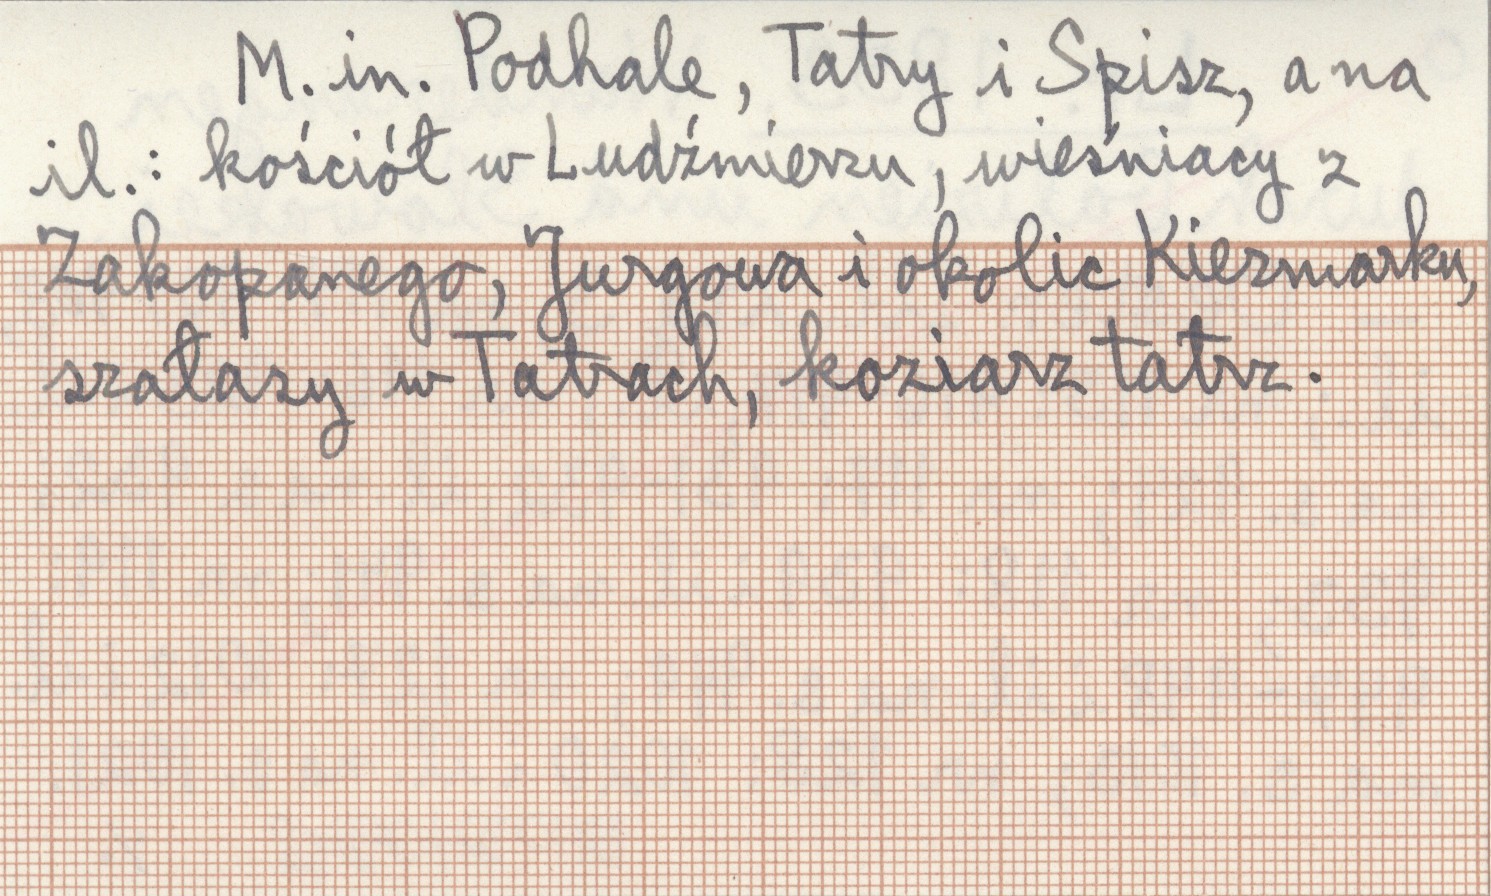 M. in. Podhale, Tatry i Spisz, a na
il.: kościół w Ludźmierzu, wieśniacy z
Zakopanego, Jurgowa i okolic Kiezmarku,
szałasy w Tatrach, koziarz tatrz.